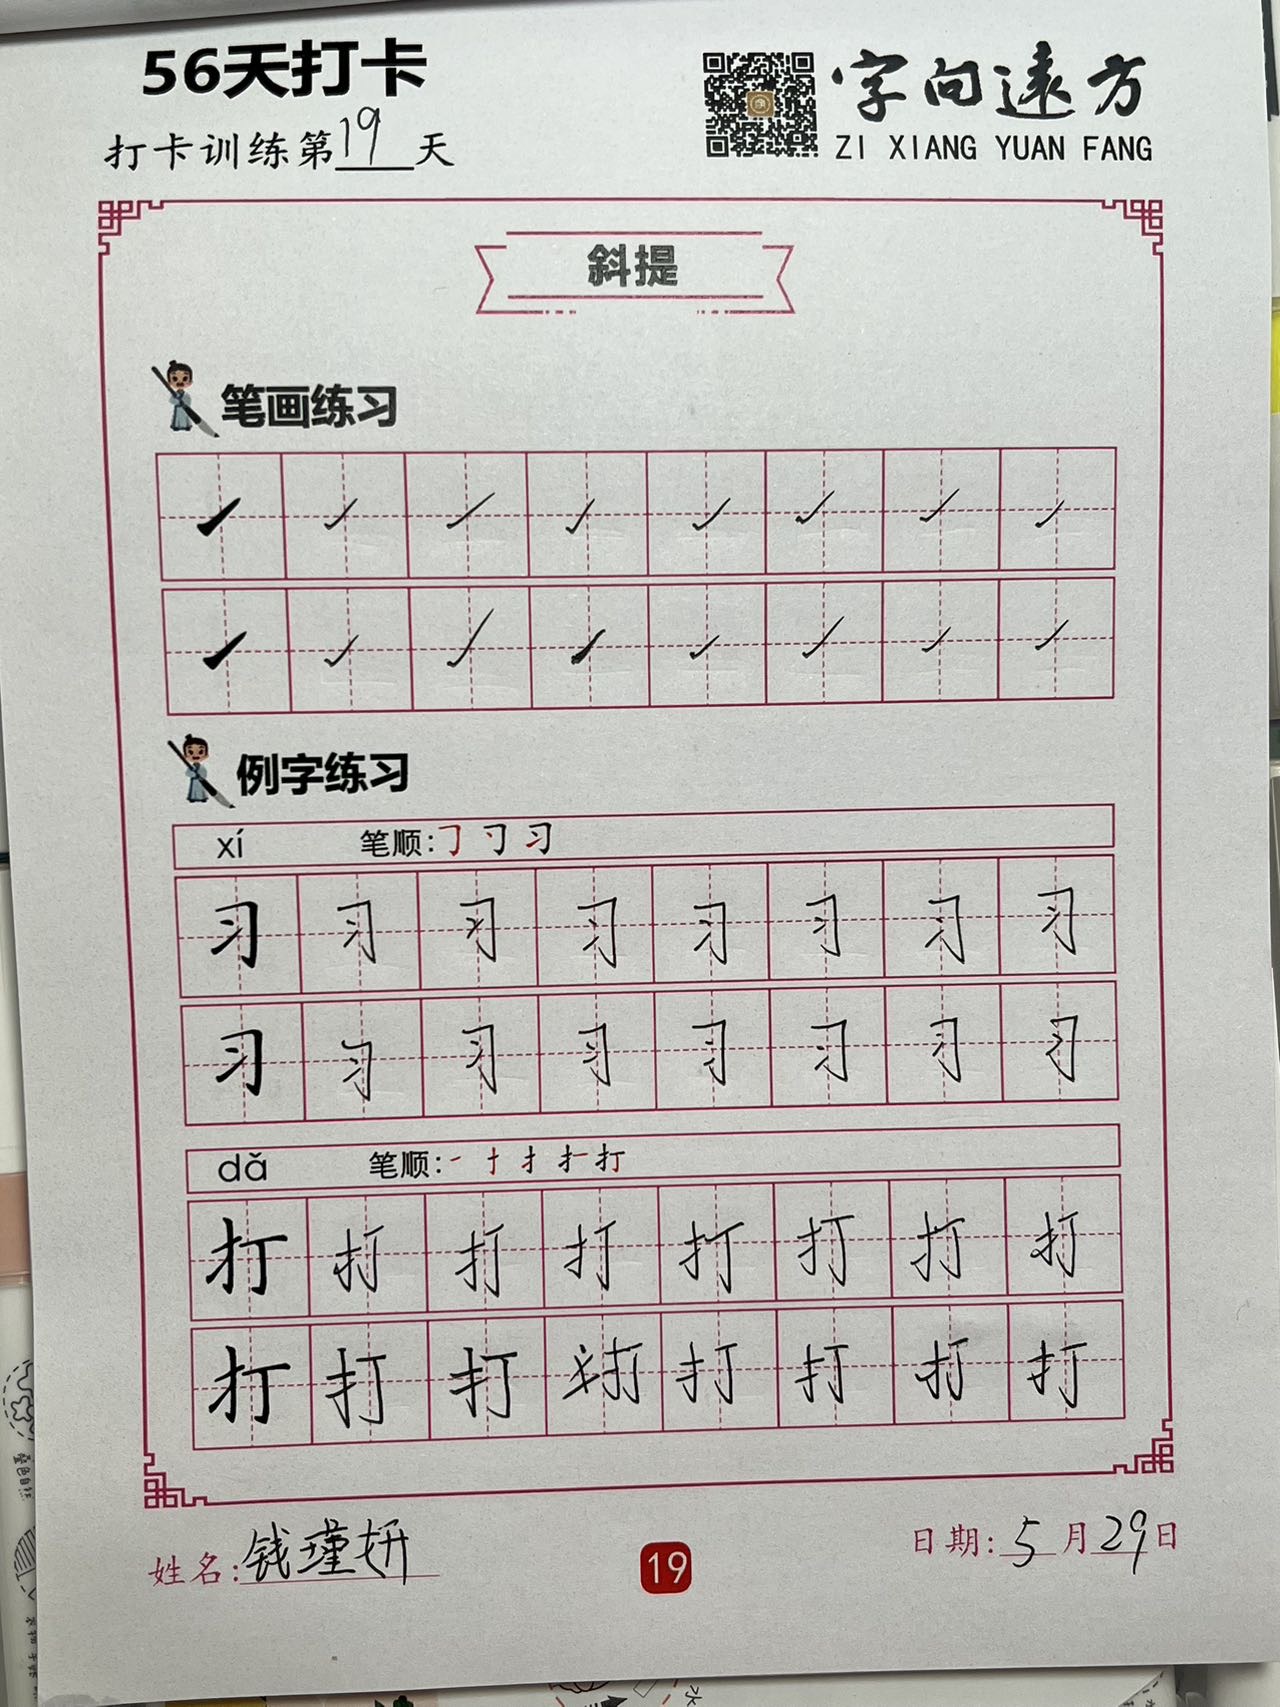 56天打卡
字向远方
打卡训练第19天
ZI XIANG YUAN FANG
斜提
笔画练习
例字练习
xí 笔顺:
习 习 习 习 习 习 习 习
习 习 习 习 习 习 习 习
dǎ 笔顺:
打 打 打 打 打 打 打 打
打 打 打 打 打 打 打 打
姓名:钱瑾妍
19
日期:5月29日